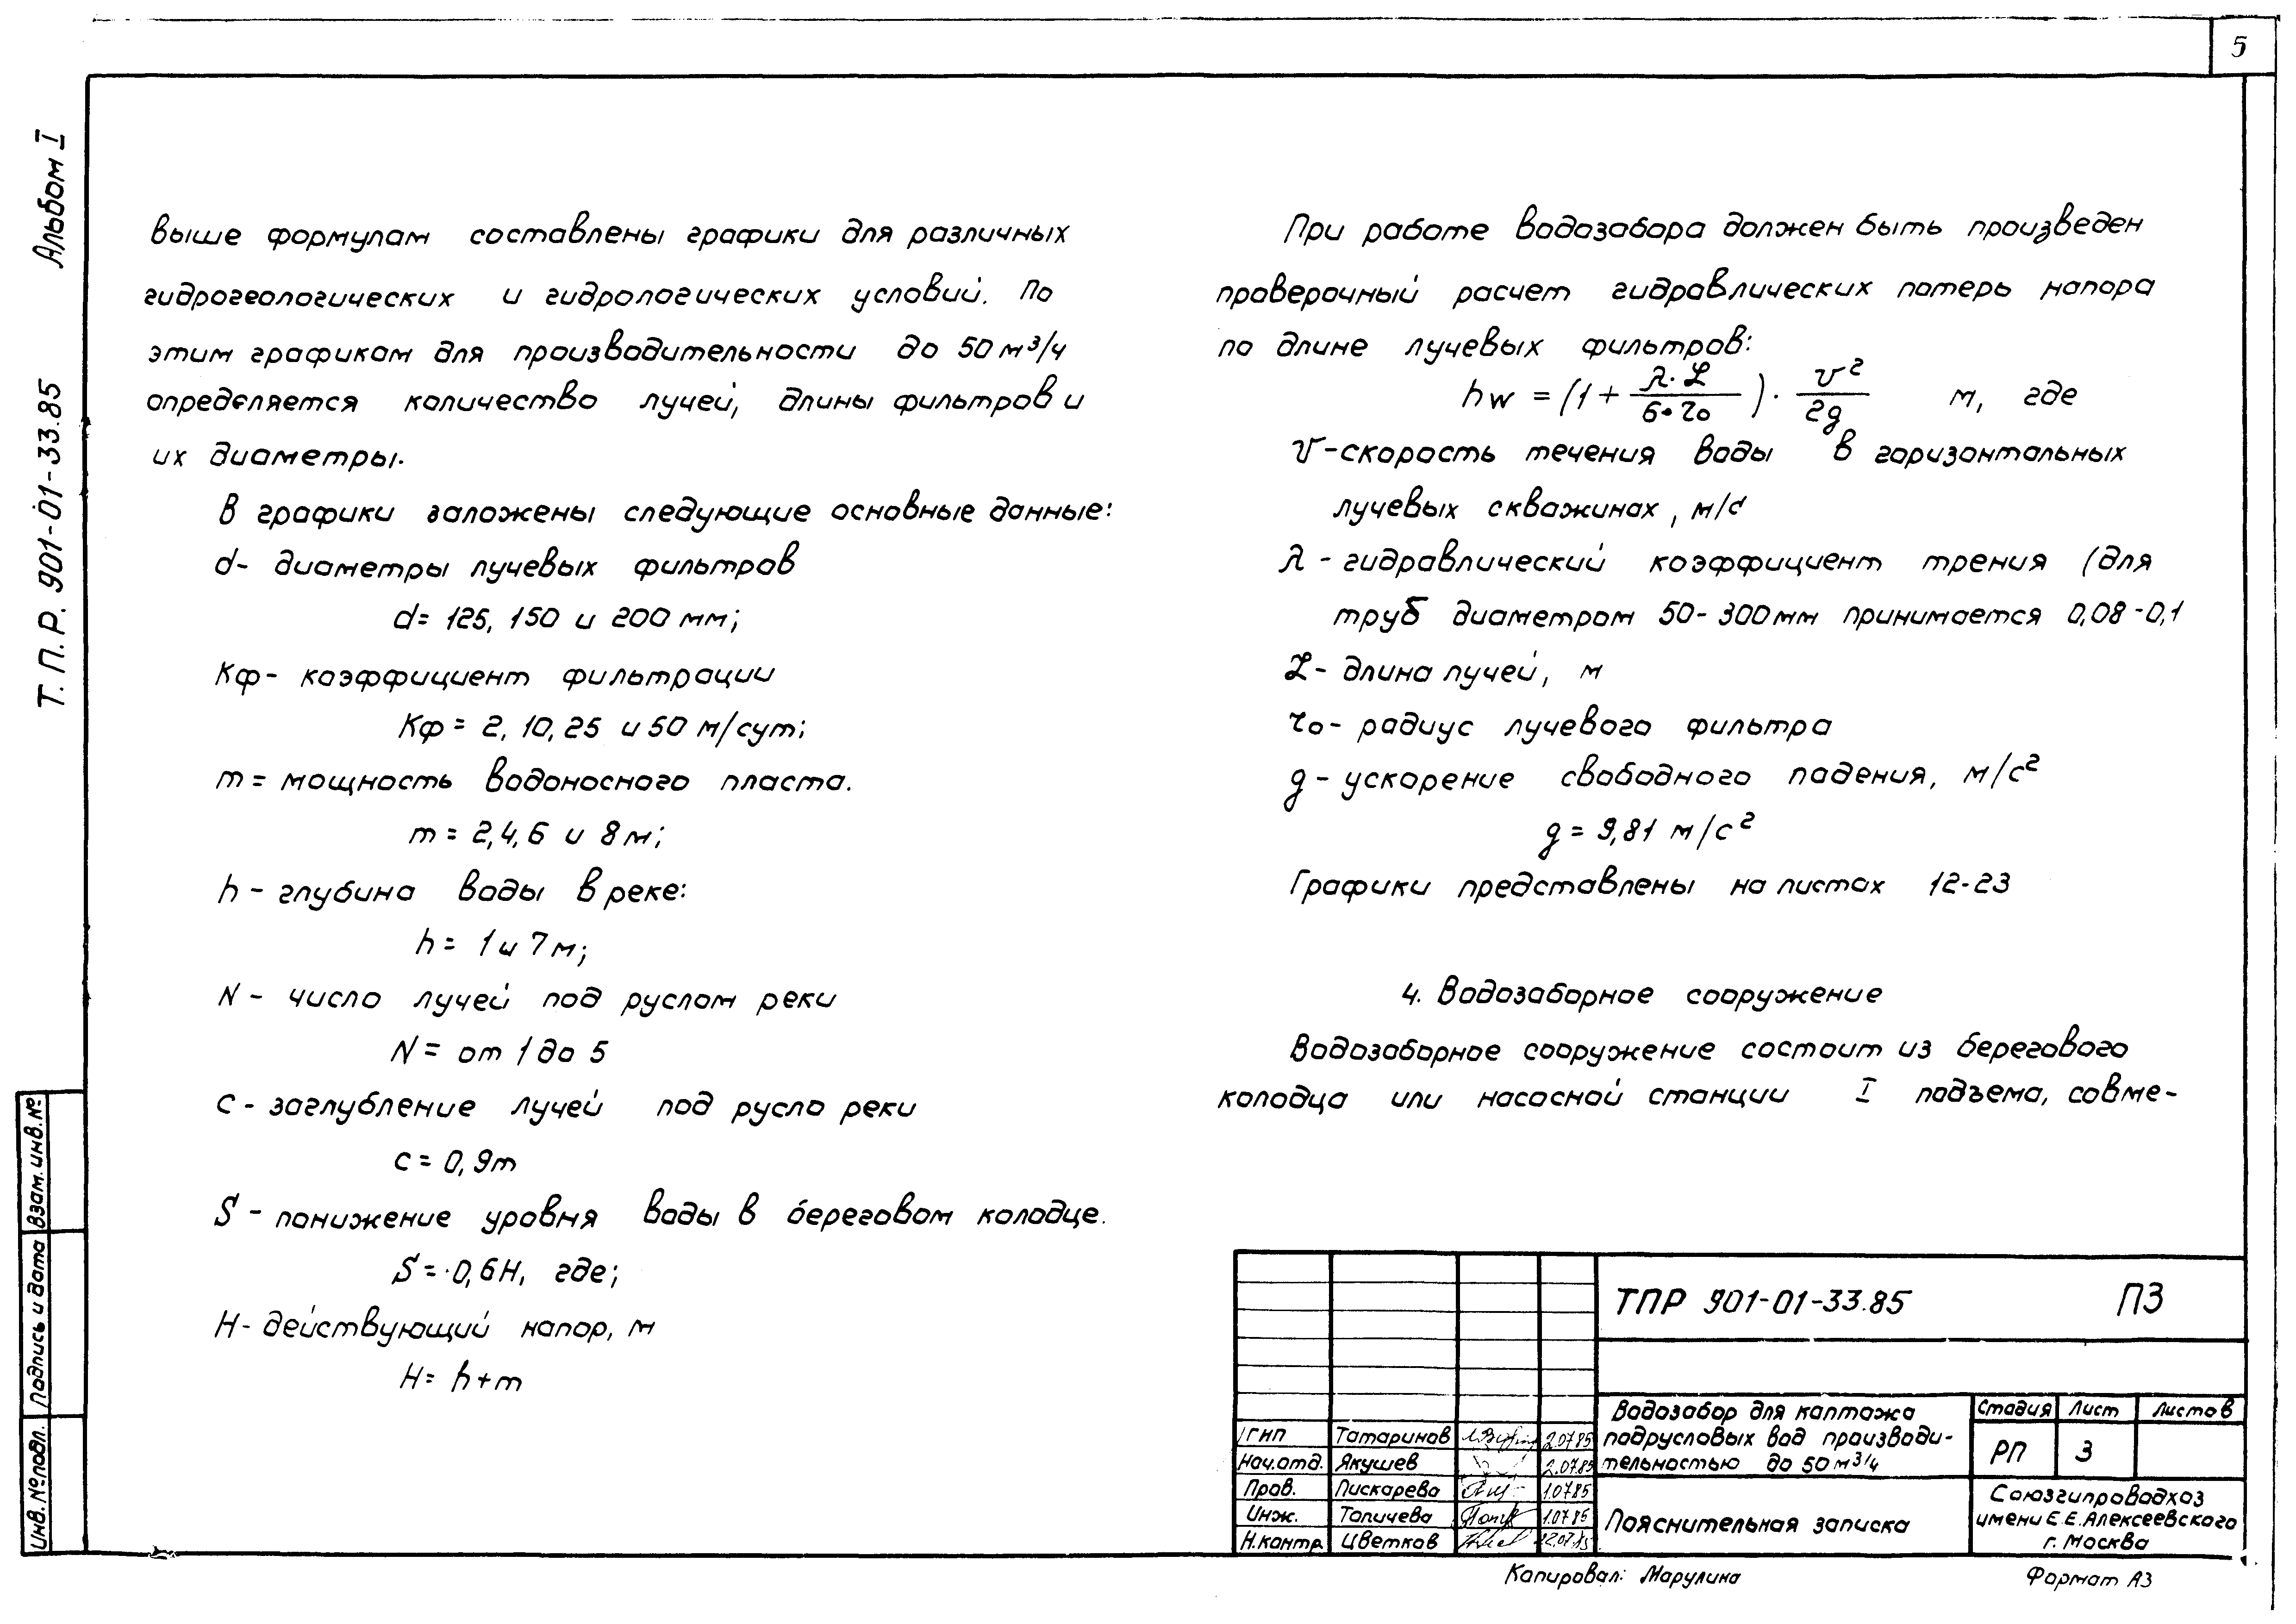 5
Альбом I
Т.П.Р. 901-01-33.85
выше формулам составлены графики для различных
гидрогеологических и гидрологических условий. По
этим графикам для производительности до 50 м³/ч
определяется количество лучей, длины фильтров и
их диаметры.
В графики заложены следующие основные данные:
d- диаметры лучевых фильтров
d= 125, 150 и 200 мм;
Кф- коэффициент фильтрации
Кф = 2, 10, 25 и 50 м/сут;
m = мощность водоносного пласта.
m = 2,4,6 и 8 м;
h - глубина воды в реке:
h = 1 и 7 м;
N - число лучей под руслом реки
N = от 1 до 5
c - заглубление лучей под русло реки
c = 0,9m
S - понижение уровня воды в береговом колодце.
S = 0,6H, где;
H- действующий напор, м
H= h+m
При работе водозабора должен быть произведен
проверочный расчет гидравлических потерь напора
по длине лучевых фильтров:
hw = (1 + λ·L / 6·r₀) · v² / 2g м, где
v -скорость течения воды в горизонтальных
лучевых скважинах, м/с
λ - гидравлический коэффициент трения (для
труб диаметром 50-300 мм принимается 0,08-0,1
L - длина лучей, м
r₀ - радиус лучевого фильтра
g - ускорение свободного падения, м/с²
g = 9,81 м/с²
Графики представлены на листах 12-23
4. Водозаборное сооружение
Водозаборное сооружение состоит из берегового
колодца или насосной станции I подъема, совме-
ТПР 901-01-33.85 ПЗ
Водозабор для каптажа
подрусловых вод производи-
тельностью до 50 м³/ч
Стадия Лист Листов
РП 3
Пояснительная записка
Союзгипроводхоз
имени Е.Е.Алексеевского
г. Москва
ГИП Татаринов 2.07.85
Нач.отд. Якушев 2.07.85
Пров. Пискарева 1.07.85
Инж. Топичева 1.07.85
Н.контр. Цветков
Инв. № подл. Подпись и дата Взам. инв. №
Копировал: Марулина Формат А3